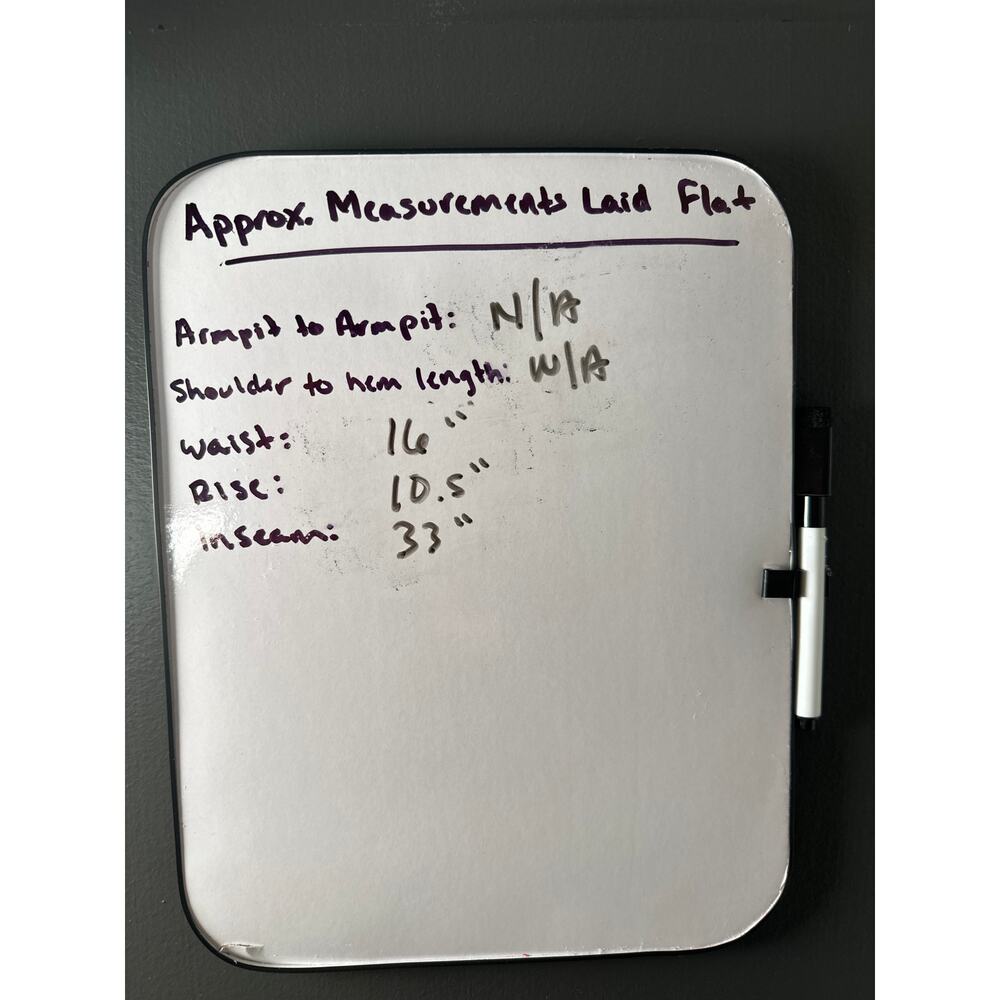 Approx. Measurements Laid Flat
Armpit to Armpit: N/A
Shoulder to hem length: N/A
Waist: 16"
Rise: 10.5"
inseam: 33"